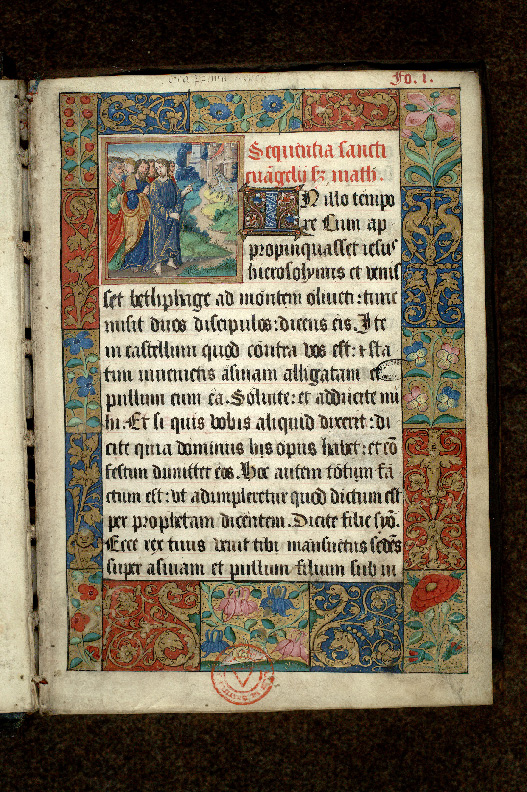 Fo. 1.
Sequentia sancti
euāgelij sz math.
IN illo tempo
re Cum ap
propinquasset iesus
hierosolymis et venis
set bethphage ad montem oliueti: tunc
misit duos discipulos: dicens eis. Ite
in castellum quod cōntra vos est: et sta
tim inuenietis asinam alligatam et
pullum cum ea. Soluite: et adducite mi
hi. Et si quis vobis aliquid dixerit: di
cite quia dominus his opus habet: et cō
festim dimittet eos. Hoc autem totum fa
ctum est: vt adimpleretur quod dictum est
per prophetam dicentem. Dicite filie syō.
Ecce rex tuus venit tibi mansuetus sedēs
super asinam et pullum filium sub iu